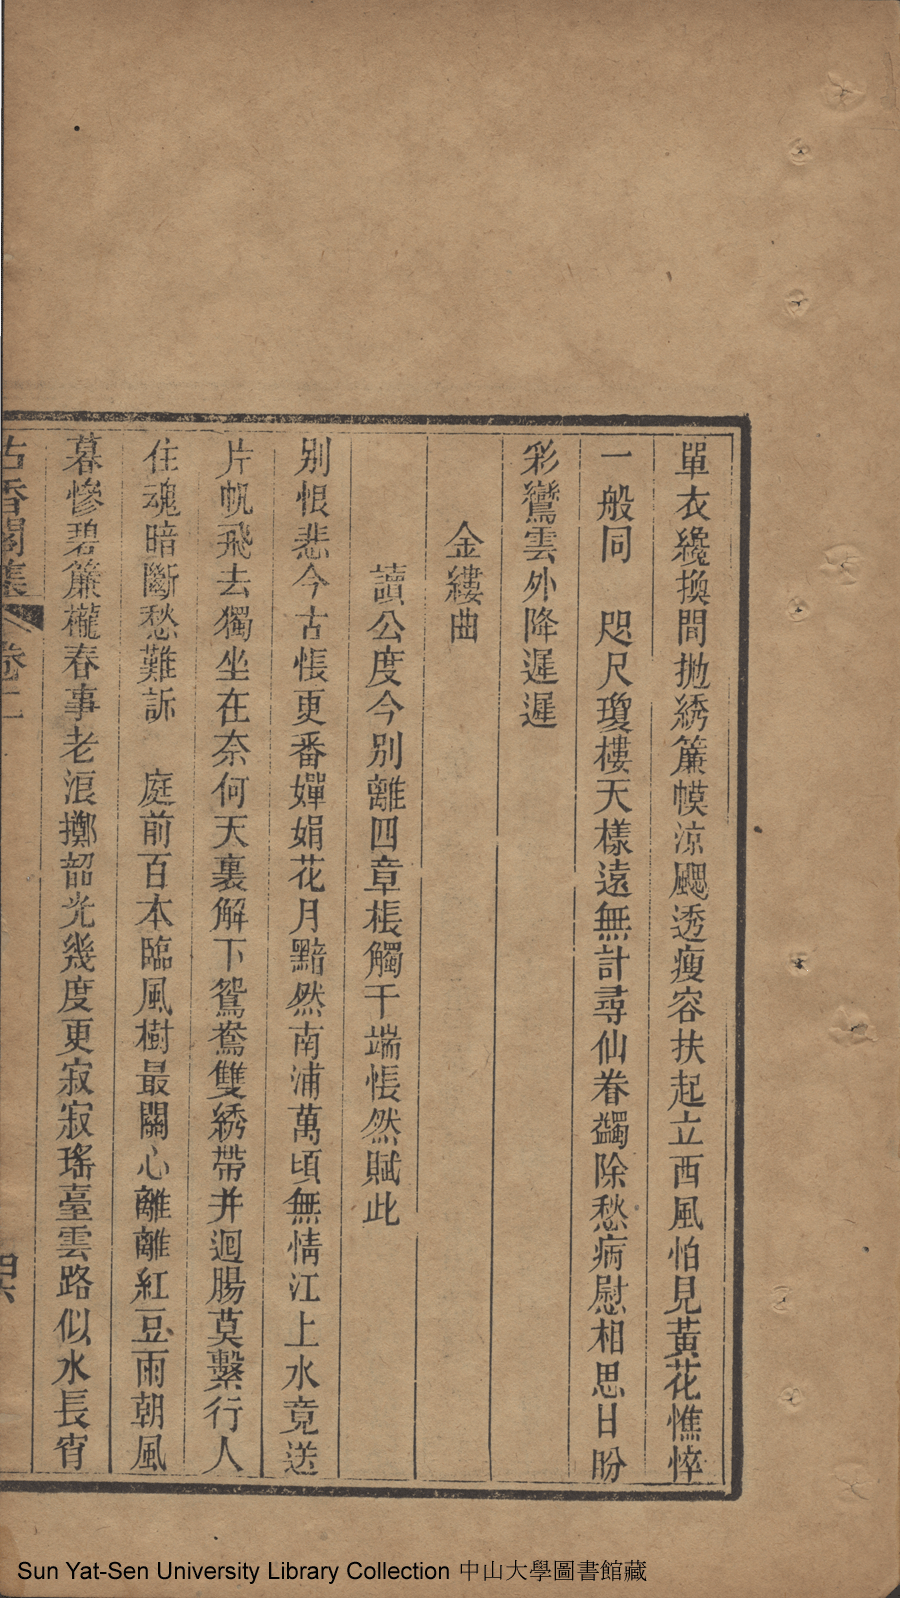 單衣纔換間抛綉簾幙涼颸透瘦容扶起立西風怕見黃花憔悴
一般同　咫尺瓊樓天樣遠無計尋仙眷蠲除愁病慰相思日盼
彩鸞雲外降遲遲
金縷曲
讀公度今別離四章棖觸千端悵然賦此
別恨悲今古悵更番嬋娟花月黯然南浦萬頃無情江上水竟送
片帆飛去獨坐在奈何天裏解下鴛鴦雙綉帶并迴腸莫繫行人
住魂暗斷愁難訴　庭前百本臨風樹最關心離離紅豆雨朝風
暮慘碧簾櫳春事老浪擲韶光幾度更寂寂瑤臺雲路似水長宵
古香閣集 卷二
Sun Yat-Sen University Library Collection 中山大學圖書館藏